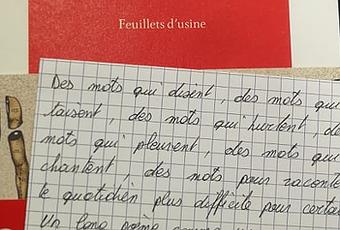 Feuillets d'usine
Des mots qui disent, des mots qui
taisent, des mots qui hurlent, de
mots qui pleurent, des mots qui
chantent, des mots pour raconte
le quotidien plus difficile pour certai
Un long poème